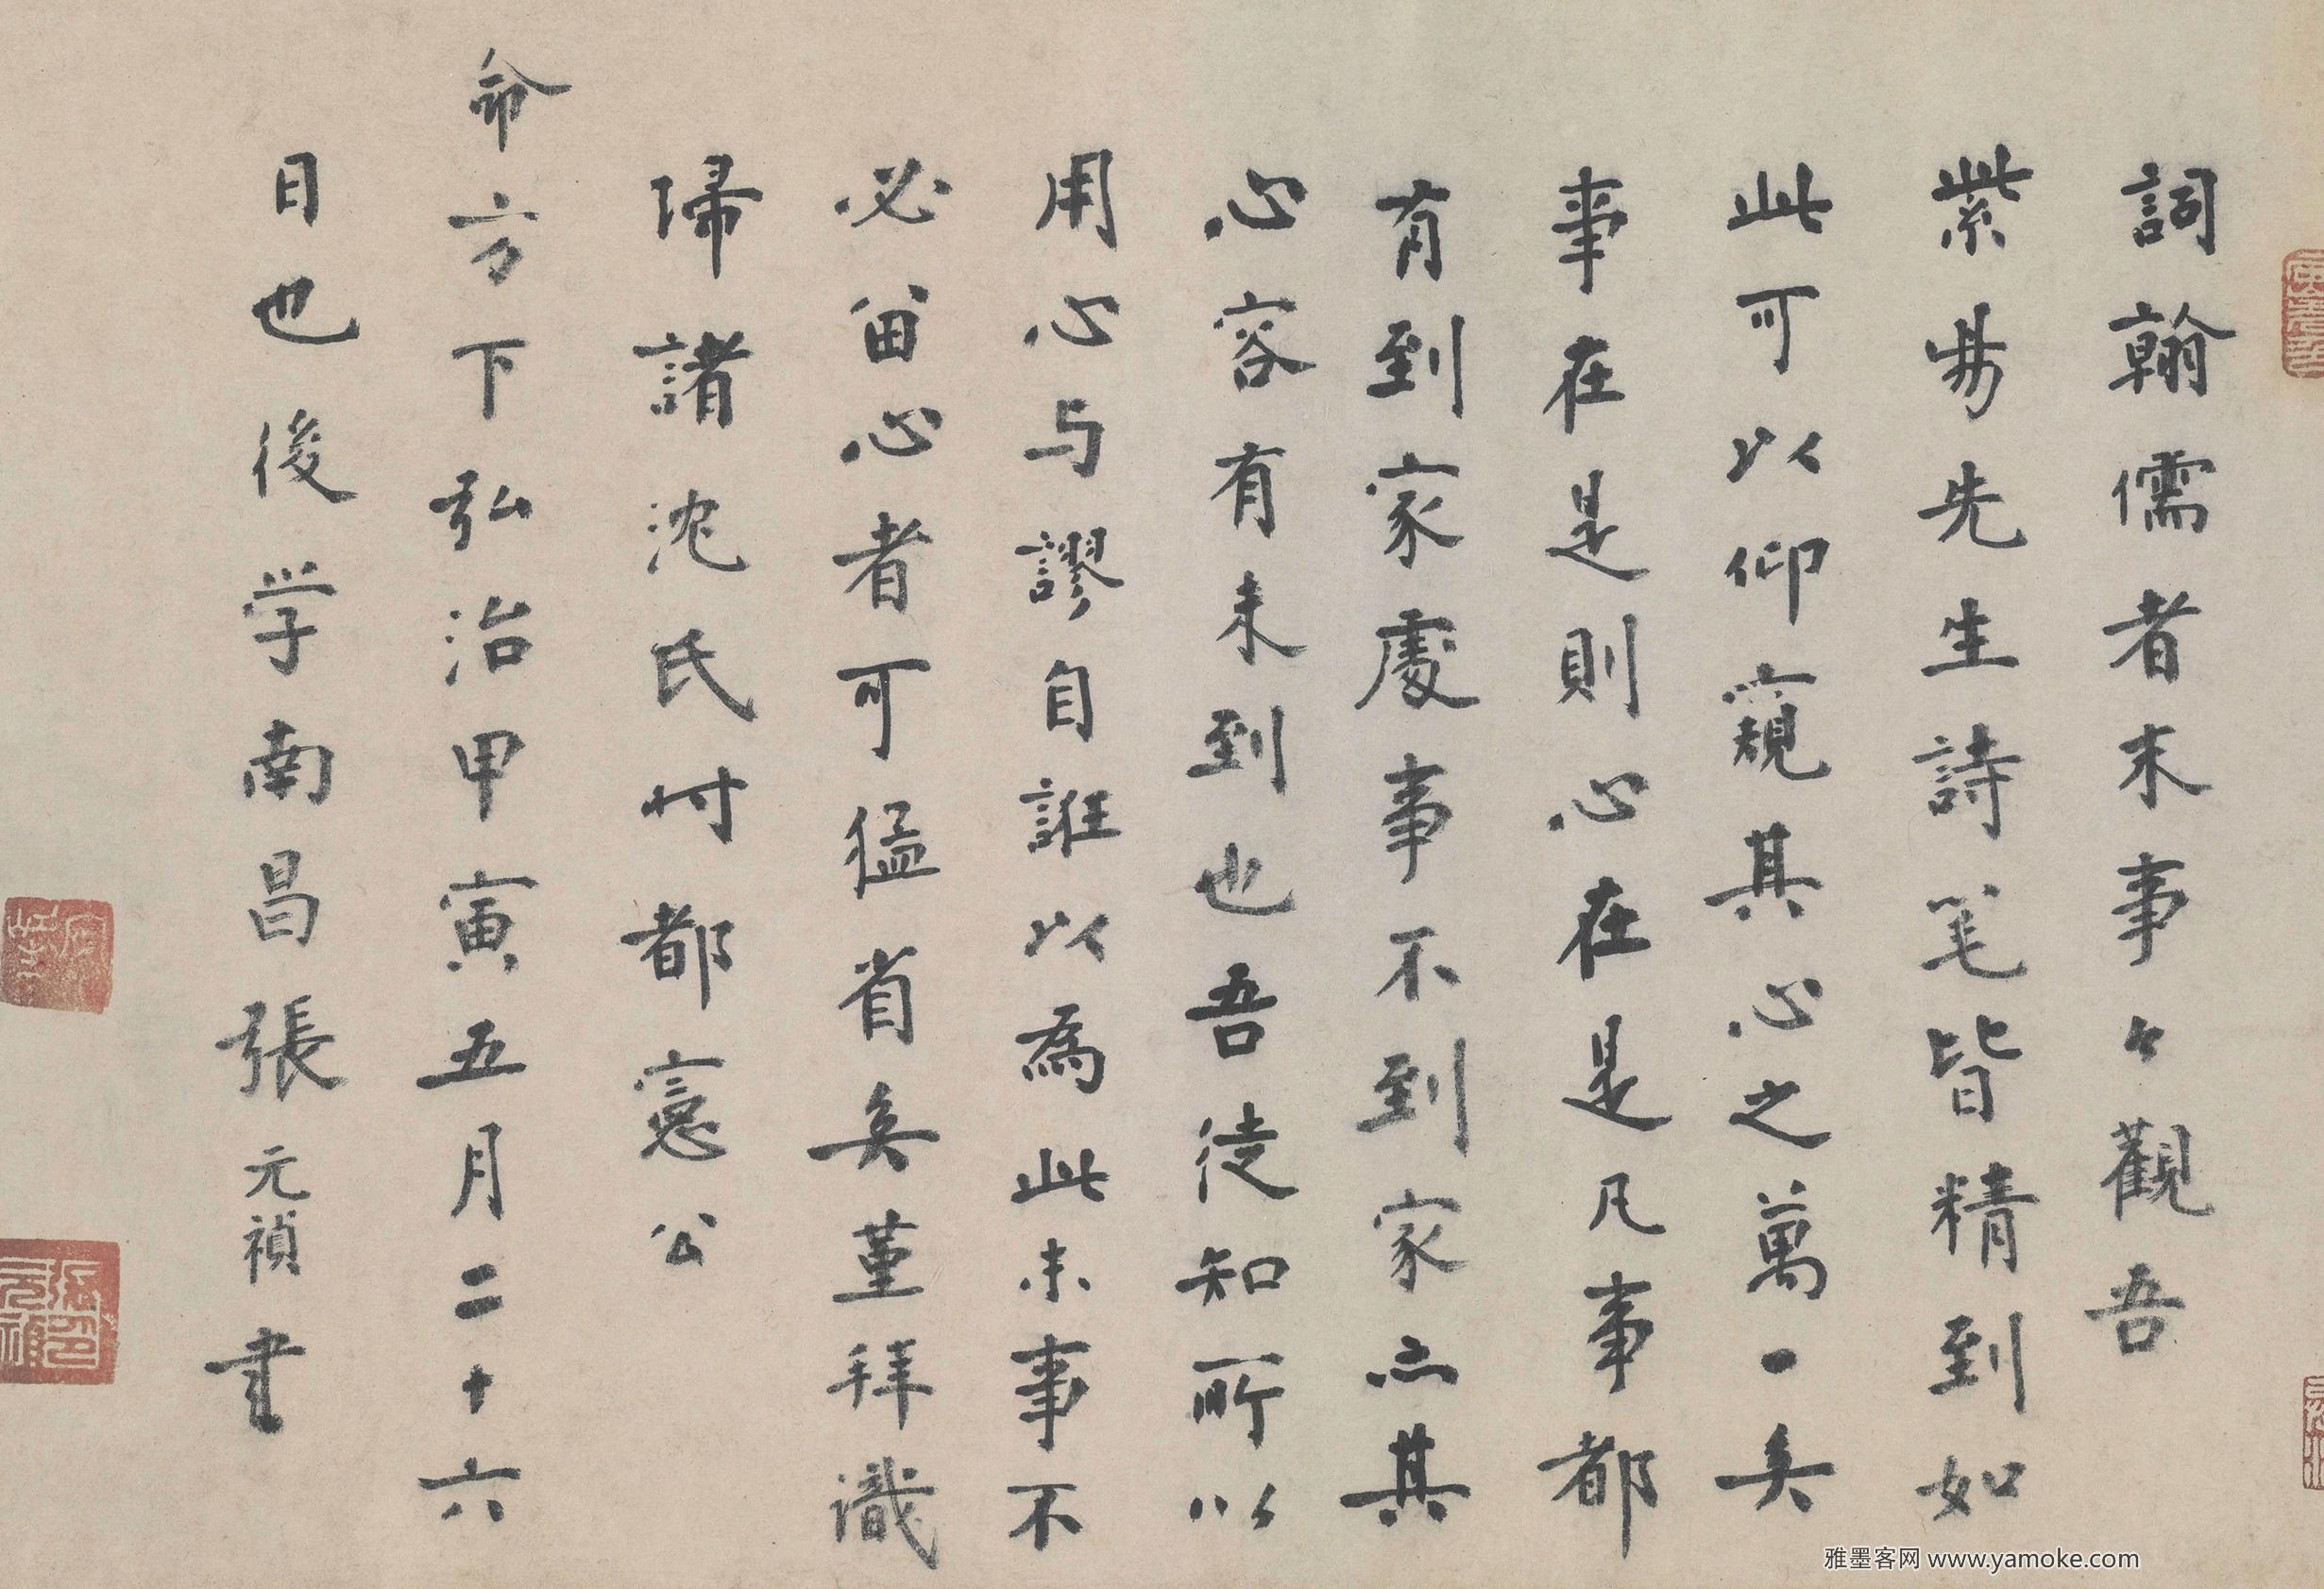 詞翰儒者末事々觀吾
紫昜先生詩笔皆精到如
此可以仰窺其心之萬一矣
事在是則心在是凡事都
有到家處事不到家亦其
心容有未到也吾徒知所以
用心与謬自誑以為此末事不
必留心者可猛省矣堇拜識
歸諸沈氏时都憲公
命方下弘治甲寅五月二十六
日也後学南昌張元禎書
張元禎印
雅墨客网 www.yamoke.com